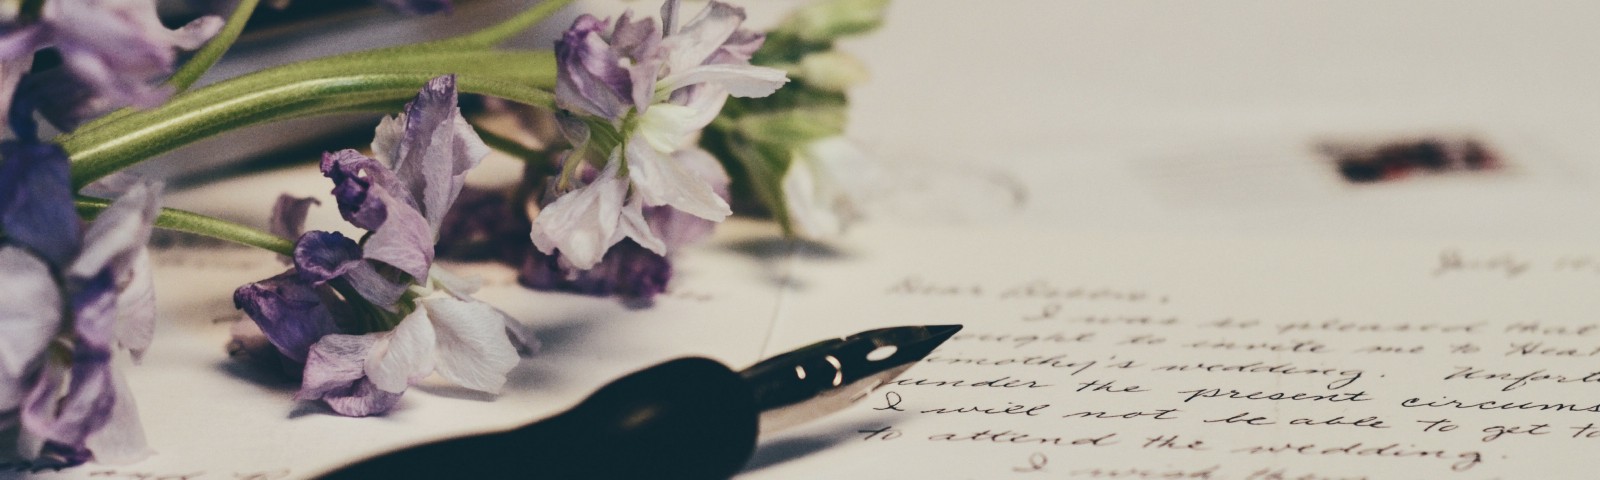 July
Dear
I was so pleased that
to invite me to
wedding. Unfort
under the present circums
I will not be able to get to
to attend the wedding.
I wish them
and